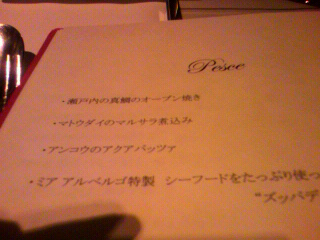 Pesce
・瀬戸内の真鯛のオーブン焼き
・マトウダイのマルサラ煮込み
・アンコウのアクアパッツァ
・ミア アルベルゴ特製 シーフードをたっぷり使っ
"ズッパデ